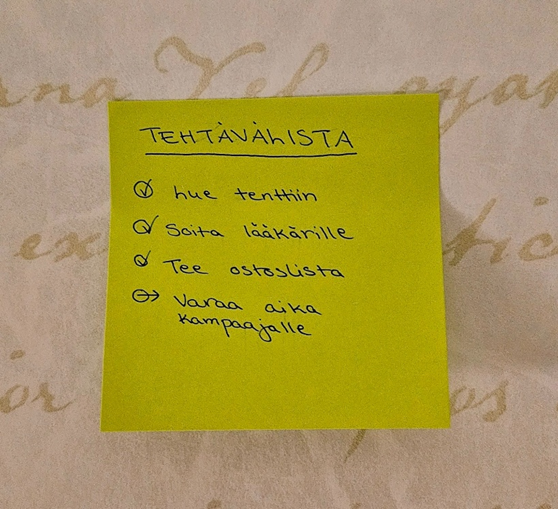 TEHTÄVÄLISTA
Lue tenttiin
Soita lääkärille
Tee ostoslista
Varaa aika
kampaajalle